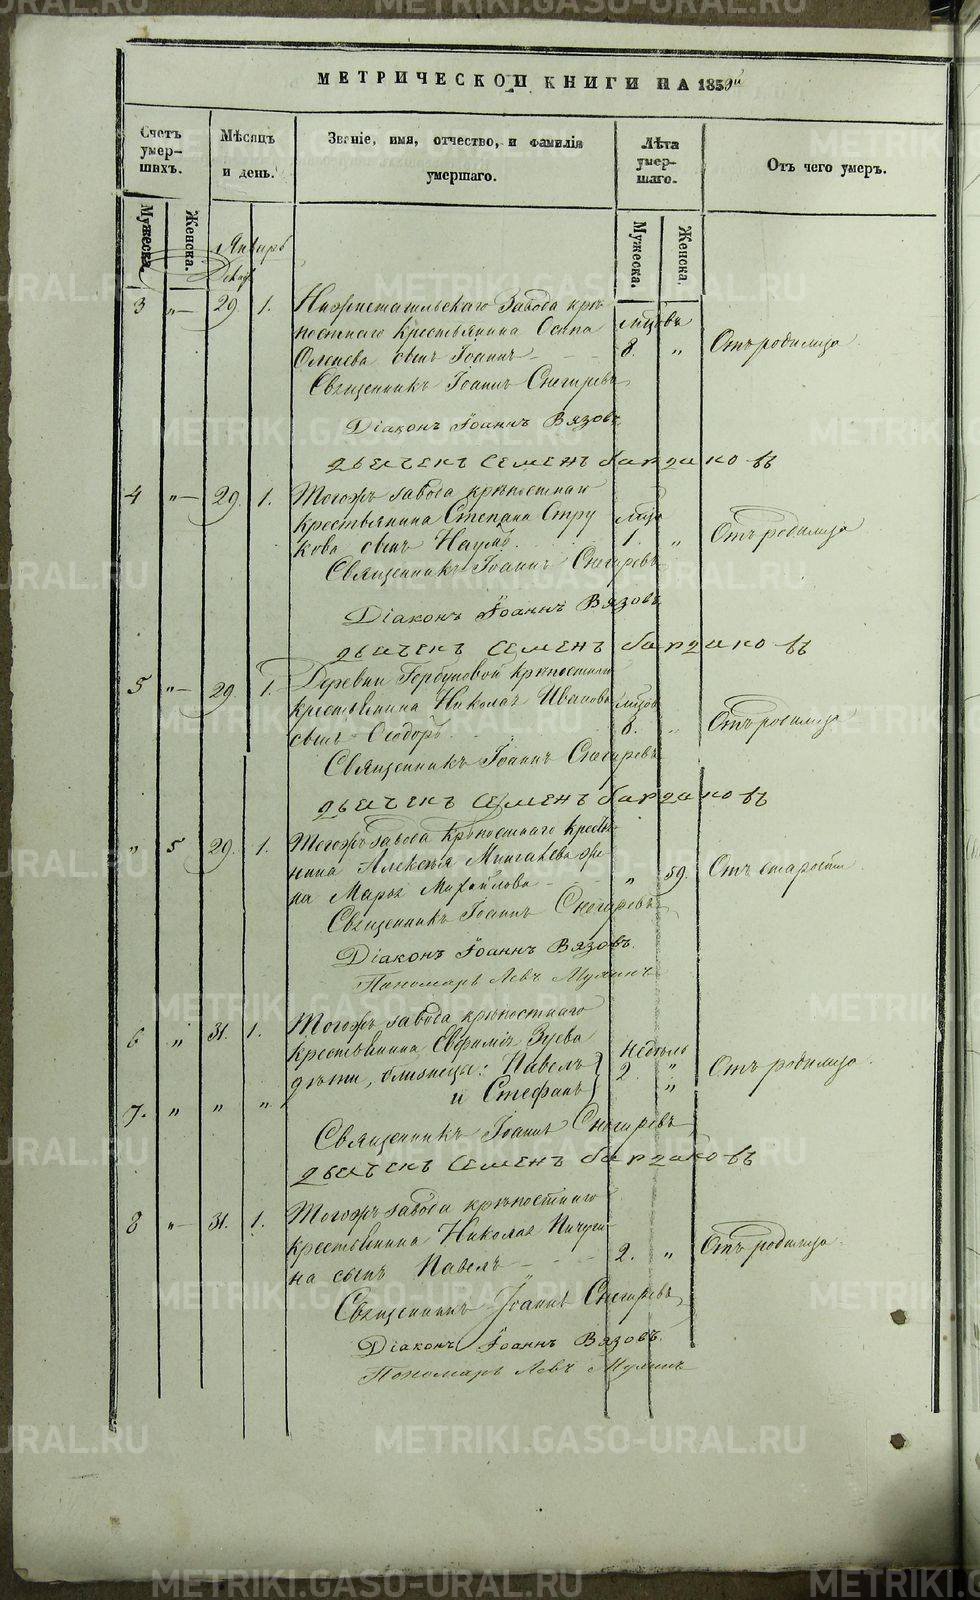 МЕТРИЧЕСКОЙ КНИГИ НА 1859й
Счетъ умер-шихъ.
Мѣсяцъ и день.
Званіе, имя, отчество, и фамилія умершаго.
Лѣта умер-шаго.
Отъ чего умеръ.
Мужеска.
Женска.
Январь
Мужеска.
Женска.
3 „ 29. 1. Нижнетагильскаго Завода крѣ-
постнаго крестьянина Осипа мѣсяцовъ
сынъ Іоаннъ 8. „ Отъ родимца
Священникъ Іоаннъ Снегиревъ
Діаконъ Іоаннъ Вязовъ
дьячекъ Семенъ бардаковъ
4 „ 29. 1. Тогожъ завода крѣпостнаго
крестьянина Степана Стру
кова сынъ Наумъ. 1. „ Отъ родимца
Священникъ Іоаннъ Снегиревъ
Діаконъ Іоаннъ Вязовъ
дьячекъ Семенъ бардаковъ
5 „ 29. 1. Деревни Горбуновой крѣпостнаго
крестьянина Николая Иванова
сынъ Ѳеодоръ. 8. „ Отъ родимца
Священникъ Іоаннъ Снегиревъ
дьячекъ Семенъ бардаковъ
„ 5 29. 1. Тогожъ завода крѣпостнаго кресть-
янина Алексѣя же-
на Марья Михайлова „ 59. Отъ старости
Священникъ Іоаннъ Снегиревъ
Діаконъ Іоаннъ Вязовъ.
Пономарь Левъ
6 „ 31. 1. Тогожъ завода крѣпостнаго
крестьянина Евфимія Зуева
дѣти, близнецы: Павелъ недѣль 2 „ Отъ родимца
7. „ „ „ и Стефанъ „
Священникъ Іоаннъ Снегиревъ
дьячекъ Семенъ бардаковъ
8 „ 31. 1. Тогожъ завода крѣпостнаго
крестьянина Николая Пичуги-
на сынъ Павелъ 2. „ Отъ родимца.
Священникъ Іоаннъ Снегиревъ
Діаконъ Іоаннъ Вязовъ.
Пономарь Левъ
METRIKI.GASO-URAL.RU